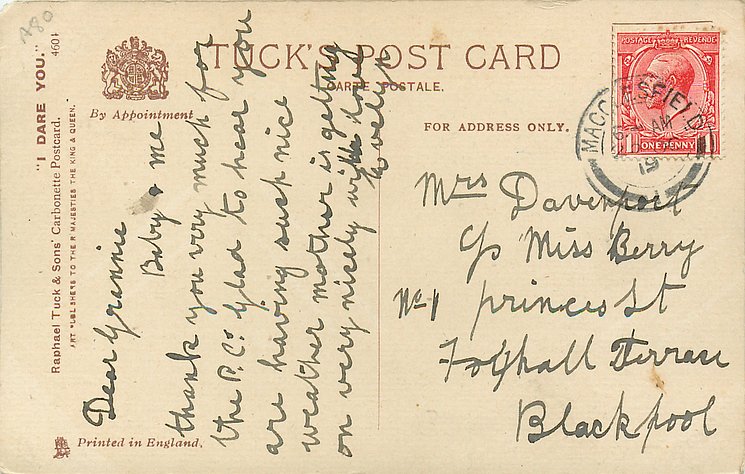 A80
"I DARE YOU." 4604
Raphael Tuck & Sons' Carbonette Postcard.
ART PUBLISHERS TO THEIR MAJESTIES THE KING & QUEEN.
By Appointment
TUCK'S POST CARD
CARTE POSTALE.
FOR ADDRESS ONLY.
POSTAGE REVENUE
1 ONE PENNY 1
MACCLESFIELD
AM
19
Dear Grannie
Baby & me
thank you very much for
the P.C. Glad to hear you
are having such nice
weather mother is getting
on very nicely with love
Mrs Davenport
c/o Miss Berry
No 1 princes St
Foxhall Terrace
Blackpool
Printed in England.